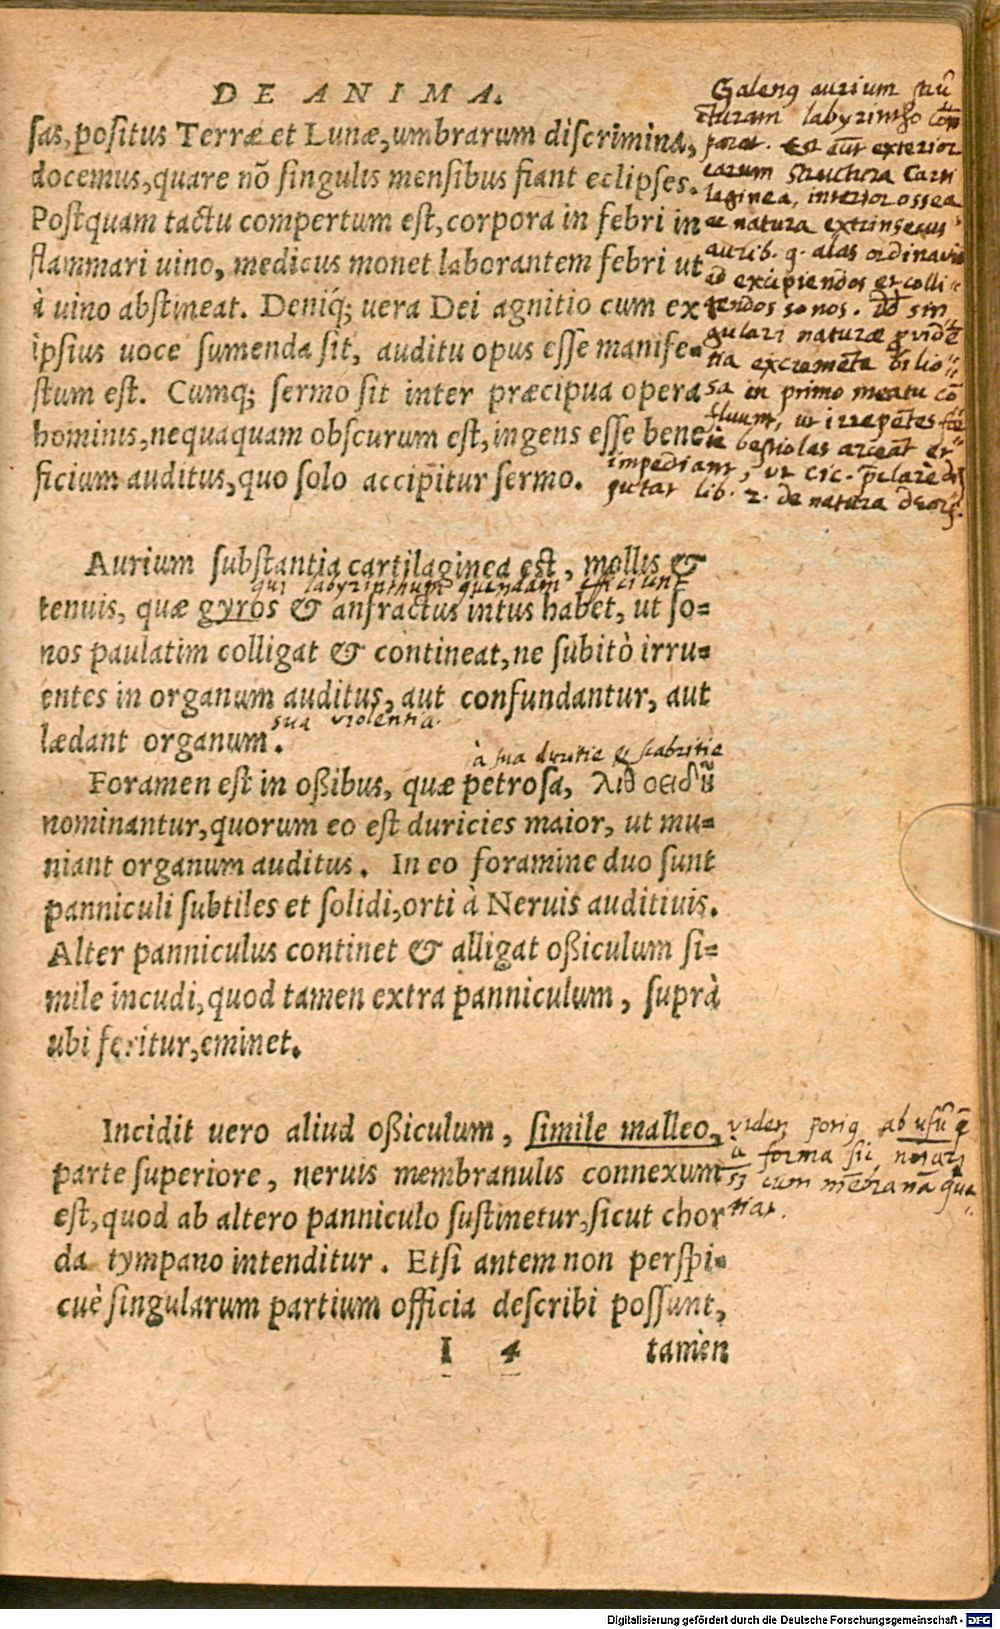 DE ANIMA.
sas, positus Terræ et Lunæ, umbrarum discrimina,
docemus, quare nõ singulis mensibus fiant eclipses.
Postquam tactu compertum est, corpora in febri in
flammari uino, medicus monet laborantem febri ut
à uino abstineat. Deniq; uera Dei agnitio cum ex
ipsius uoce sumenda sit, auditu opus esse manife=
stum est. Cumq; sermo sit inter præcipua opera
hominis, nequaquam obscurum est, ingens esse bene
ficium auditus, quo solo accipitur sermo.
Galenus aurium stru
cturam labyrintho com
parat. Est aut exterior
earum structura carti
laginea, interior ossea
ac natura extrinsecus
aurib. q. alas ordinavit
ad excipiendos et colli
gendos sonos.
gulari naturæ providẽ
tia excremẽta bilio
sa in primo meatu cõ
fluunt, ut irrepẽtes
bestiolas arceãt et
impediant, ut Cic.
lib. 2. de natura deor.
Aurium substantia cartilaginea est, mollis &
qui labyrinthum quendam efficiunt
tenuis, quæ gyros & anfractus intus habet, ut so=
nos paulatim colligat & contineat, ne subitò irru=
entes in organum auditus, aut confundantur, aut
sua violentia.
lædant organum.
à sua duritie et scabritie
Foramen est in oßibus, quæ petrosa, λιθοειδῆ
nominantur, quorum eo est duricies maior, ut mu=
niant organum auditus. In eo foramine duo sunt
panniculi subtiles et solidi, orti à Neruis auditiuis.
Alter panniculus continet & alligat oßiculum si=
mile incudi, quod tamen extra panniculum, suprà
ubi feritur, eminet.
Incidit uero aliud oßiculum, simile malleo,
parte superiore, neruis membranulis connexum
est, quod ab altero panniculo sustinetur, sicut chor
da tympano intenditur. Etsi antem non perspi=
cuè singularum partium officia describi possunt,
ab usu
a forma sic
cum mẽbrana
I 4 tamèn
Digitalisierung gefördert durch die Deutsche Forschungsgemeinschaft - DFG